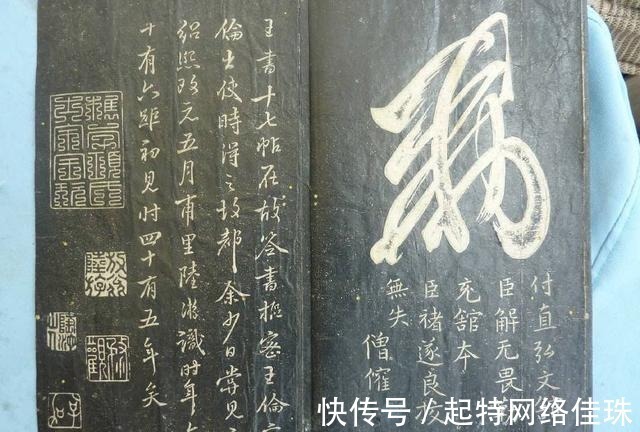 付直弘文
臣解无畏
充舘本
臣褚遂良校
無失
僧權
王書十七帖在故答書樞密王倫
倫出使時得之故都余少日嘗見
紹熙改元五月甫里陸游識時年
十有六距初見时四十有五年矣
快传号/起特网络佳珠